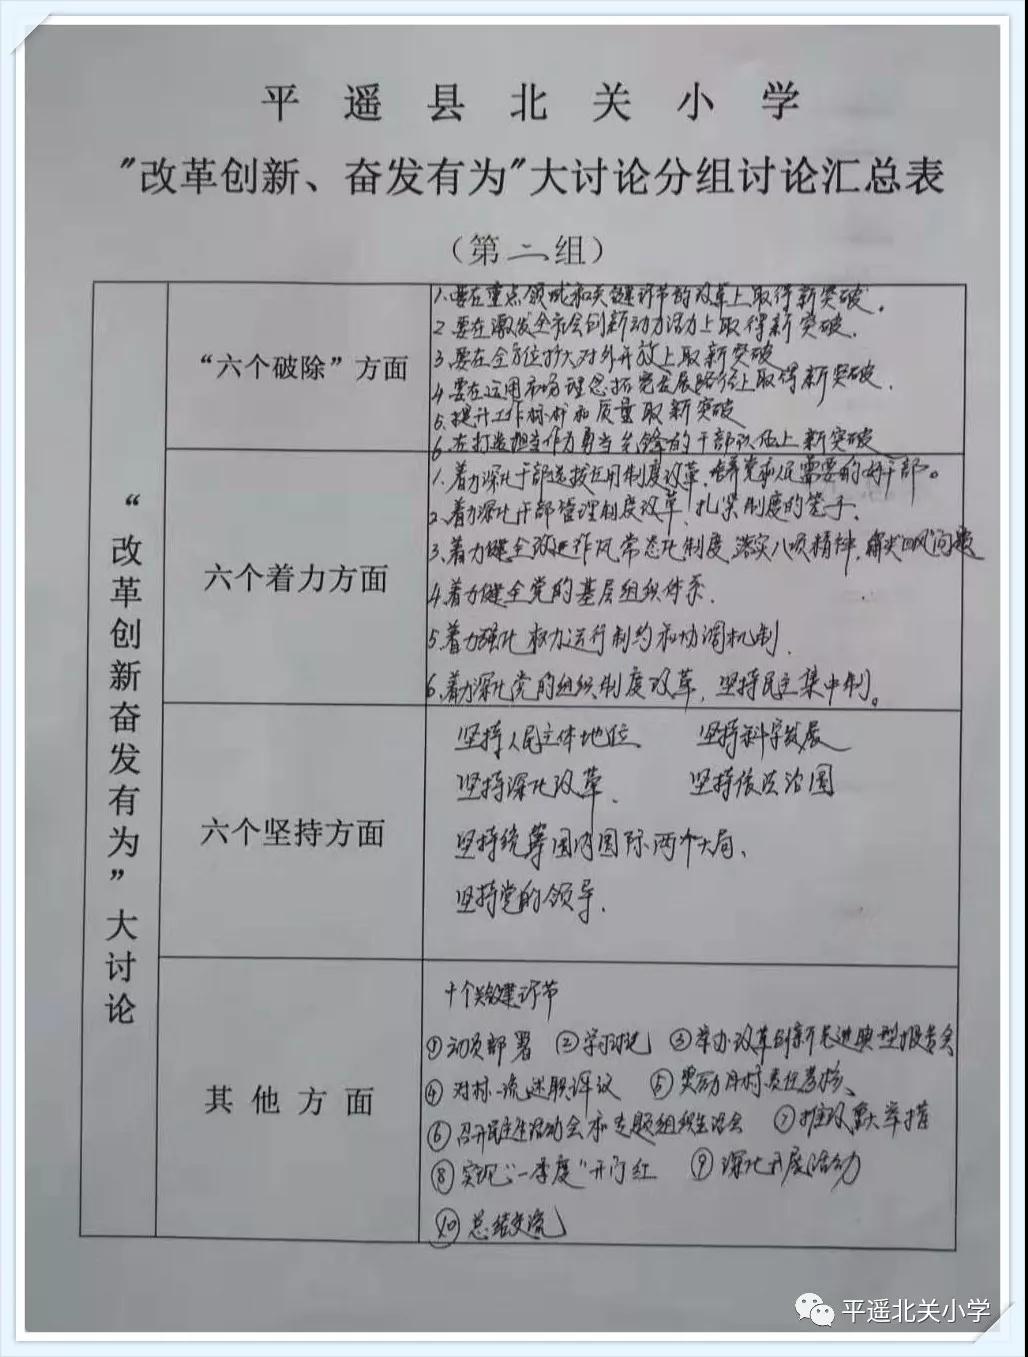 平遥县北关小学
"改革创新、奋发有为"大讨论分组讨论汇总表
（第二组）
“改革创新奋发有为”大讨论
“六个破除”方面
1.要在重点领域和关键环节的改革上取得新突破。
2.要在激发全社会创新动力活力上取得新突破.
3.要在全方位扩大对外开放上取新突破
4.要在运用市场理念拓宽发展路径上取得新突破.
5.提升工作标准和质量取新突破
6.在打造担当作为勇当先锋的干部队伍上新突破
六个着力方面
1.着力深化干部选拔任用制度改革,培养党和人民需要的好干部。
2.着力深化干部管理制度改革,扎紧制度的笼子.
3.着力健全改进作风常态化制度,落实八项精神,解决四风问题
4.着力健全党的基层组织体系.
5.着力强化权力运行制约和协调机制.
6.着力深化党的组织制度改革,坚持民主集中制。
六个坚持方面
坚持人民主体地位、 坚持科学发展
坚持深化改革、 坚持依法治国
坚持统筹国内国际两个大局、
坚持党的领导.
其他方面
十个关键环节
①动员部署 ②学习 ③举办改革创新先进典型报告会
④对标一流述职评议 ⑤奖励目标责任考核、
⑥召开民主生活会和专题组织生活会 ⑦推改重大举措
⑧实现“一季度”开门红 ⑨深化开展活动
⑩总结交流
平遥北关小学